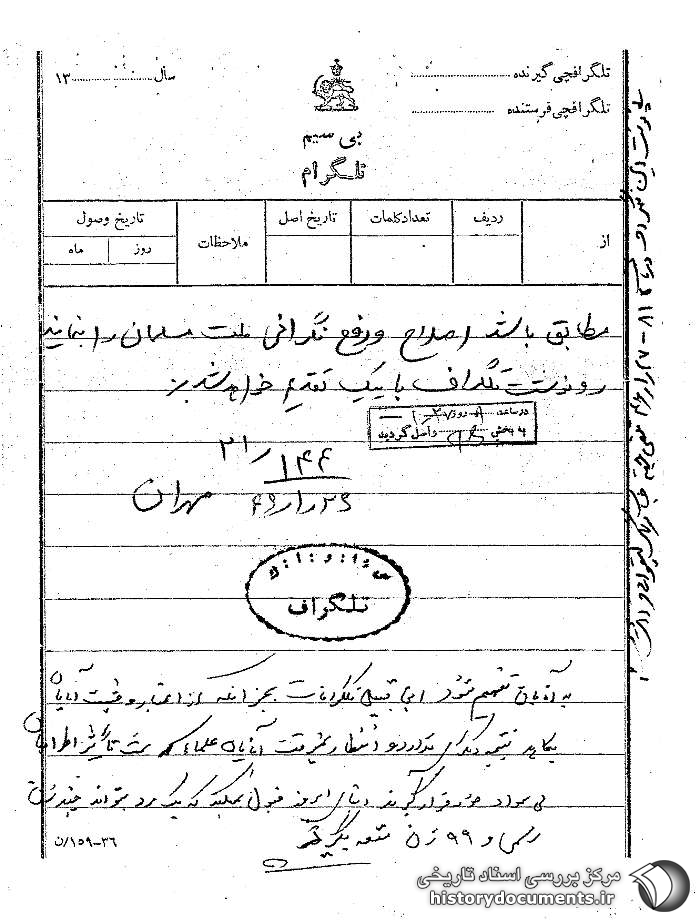 تلگرافچی گیرنده
تلگرافچی فرستنده
سال ۱۳
بی سیم
تلگرام
از
ردیف
تعداد کلمات
تاریخ اصل
ملاحظات
تاریخ وصول
روز
ماه
مطابق باشد اصلاح و رفع نگرانی ملت مسلمان را نمایند
رونوشت تلگراف با پیک تقدیم خواهد شد
در ساعت روز
به بخش واصل گردید
۲۱/۱۴۴
مهران
س.ا.و.ا.ک
تلگراف
به آقایان تفهیم شود این قبیل تلگرافات بجز اینکه از اعتبار و وقت آقایان
بکاهد نتیجه دیگری ندارد و انتظار نمیرفت آقایان علماء تحت تأثیر اطرافیان
بی سواد خود قرار گیرند دنیای امروز قبول نمیکند که یک مرد بتواند چند زن
رسمی و ۹۹ زن متعه بگیرد
ن/۱۵۹-۳۶
مرکز بررسی اسناد تاریخی
historydocuments.ir